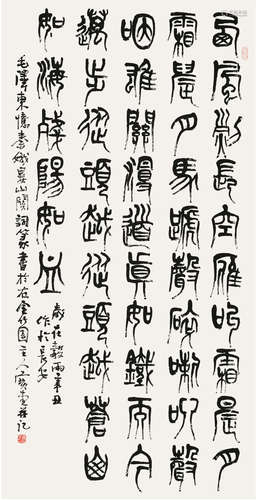 西風烈長空雁叫霜晨月
霜晨月馬蹄聲碎喇叭聲
咽雄關漫道真如鐵而今
邁步從頭越從頭越蒼山
如海殘陽如血
歲在穀雨辛丑
作於長安
毛澤東憶秦娥婁山關詞篆書於